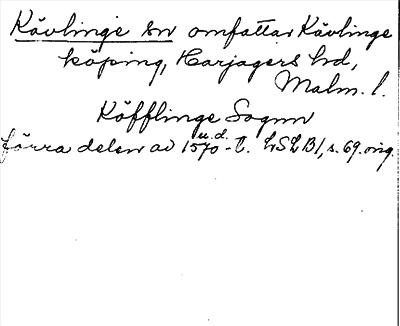 Kävlinge sn omfattar Kävlinge
köping, Harjagers hd,
Malm. l.
Köfflinge Sognn
u.d.
förra delen av 1570-t. LSLB1, s. 69. orig.